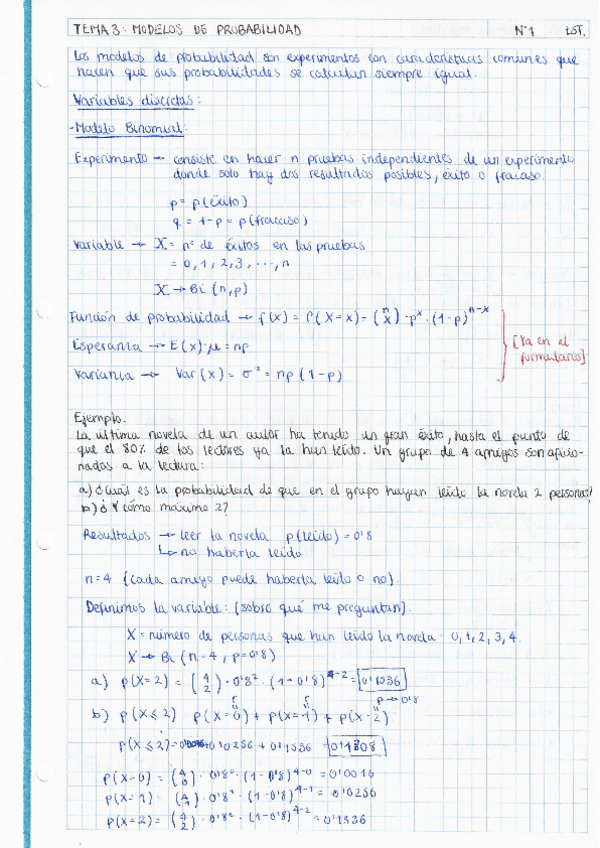 TEMA 3: MODELOS DE PROBABILIDAD Nº1 EST.
Los modelos de probabilidad son experimentos con características comunes que
hacen que sus probabilidades se calculan siempre igual.
Variables discretas:
-Modelo Binomial:
Experimento → consiste en hacer n pruebas independientes de un experimento
donde solo hay dos resultados posibles, éxito o fracaso.
p = p(éxito)
q = 1-p = p(fracaso)
Variable → X = nº de éxitos en las pruebas
= 0, 1, 2, 3, ..., n
X → Bi (n,p)
Función de probabilidad → f(x) = P(X=x) = (n x) · p^x · (1-p)^n-x
Esperanza → E(x) = μ = np
Varianza → Var(x) = σ² = np(1-p)
[Ya en el
formulario]
Ejemplo.
La última novela de un autor ha tenido un gran éxito, hasta el punto de
que el 80% de los lectores ya la han leído. Un grupo de 4 amigos son aficio-
nados a la lectura:
a) ¿Cuál es la probabilidad de que en el grupo hayan leído la novela 2 personas?
b) ¿Y cómo máximo 2?
Resultados → leer la novela p(leído) = 0'8
↳ no haberla leído
n=4 (cada amigo puede haberla leído o no).
Definimos la variable: (sobre qué me preguntan).
X = número de personas que han leído la novela 0, 1, 2, 3, 4.
X → Bi (n=4, p=0'8)
a) p(X=2) = (4 2) · 0'8² · (1-0'8)^4-2 = 0'1536
p → 0'8
b) p(X≤2) p(X=0) + p(X=1) + p(X=2)
p(X≤2) = 0'0016 + 0'0256 + 0'1536 = 0'1808
p(X=0) = (4 0) · 0'8⁰ · (1-0'8)^4-0 = 0'0016
p(X=1) = (4 1) · 0'8¹ · (1-0'8)^4-1 = 0'0256
p(X=2) = (4 2) · 0'8² · (1-0'8)^4-2 = 0'1536